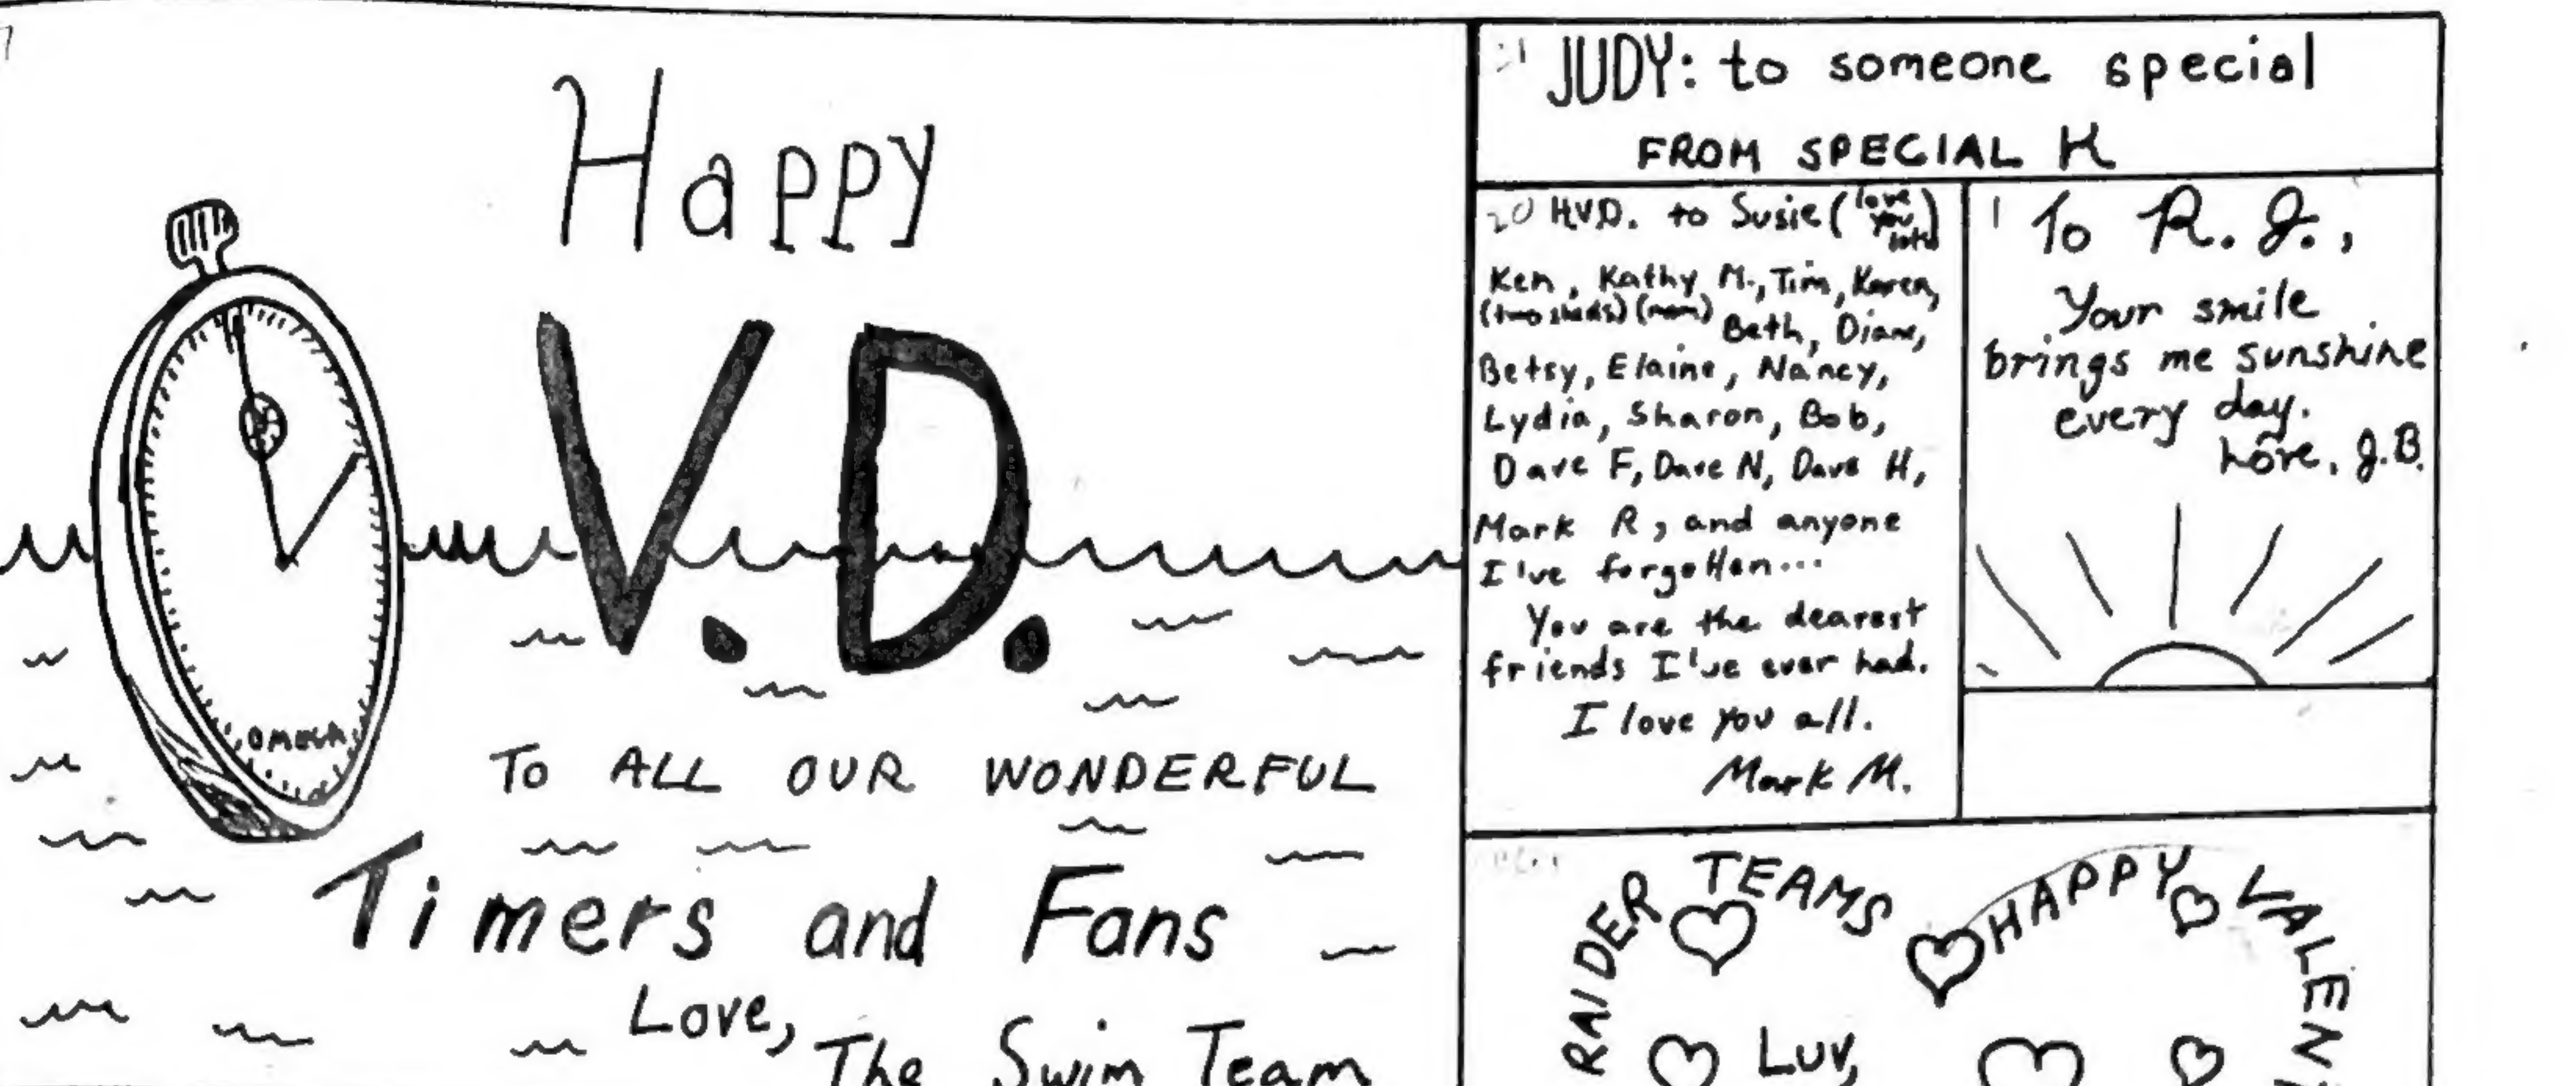 Happy
V.D.
OMEGA
TO ALL OUR WONDERFUL
Timers and Fans
Love,
The Swim Team
JUDY: to someone special
FROM SPECIAL K
20 H.V.D. to Susie (love
you
lots)
Ken, Kathy M., Tim, Karen,
(two sheds) (mom) Beth, Diane,
Betsy, Elaine, Nancy,
Lydia, Sharon, Bob,
Dave F, Dave N, Dave H,
Mark R, and anyone
I've forgotten...
You are the dearest
friends I've ever had.
I love you all.
Mark M.
To R.J.,
Your smile
brings me sunshine
every day.
Love, J.B.
RAIDER TEAMS HAPPY VALEN
Luv,